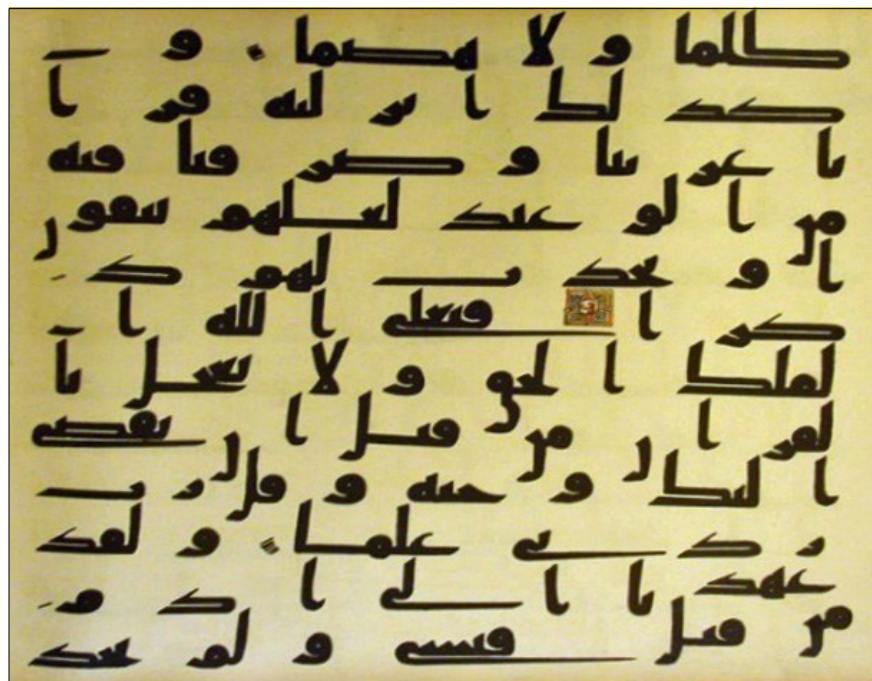 ظلما ولا هضما و
كذلك انزلنه قرا
نا عربيا وصرفنا فيه
من الوعيد لعلهم يتقون
او يحدث لهم ذ
كرا فتعلى الله ا
لملك الحق ولا تعجل با
لقران من قبل ان يقضى
اليك وحيه وقل رب
زدني علما ولقد
عهدنا الى ادم
من قبل فنسي ولم نجد